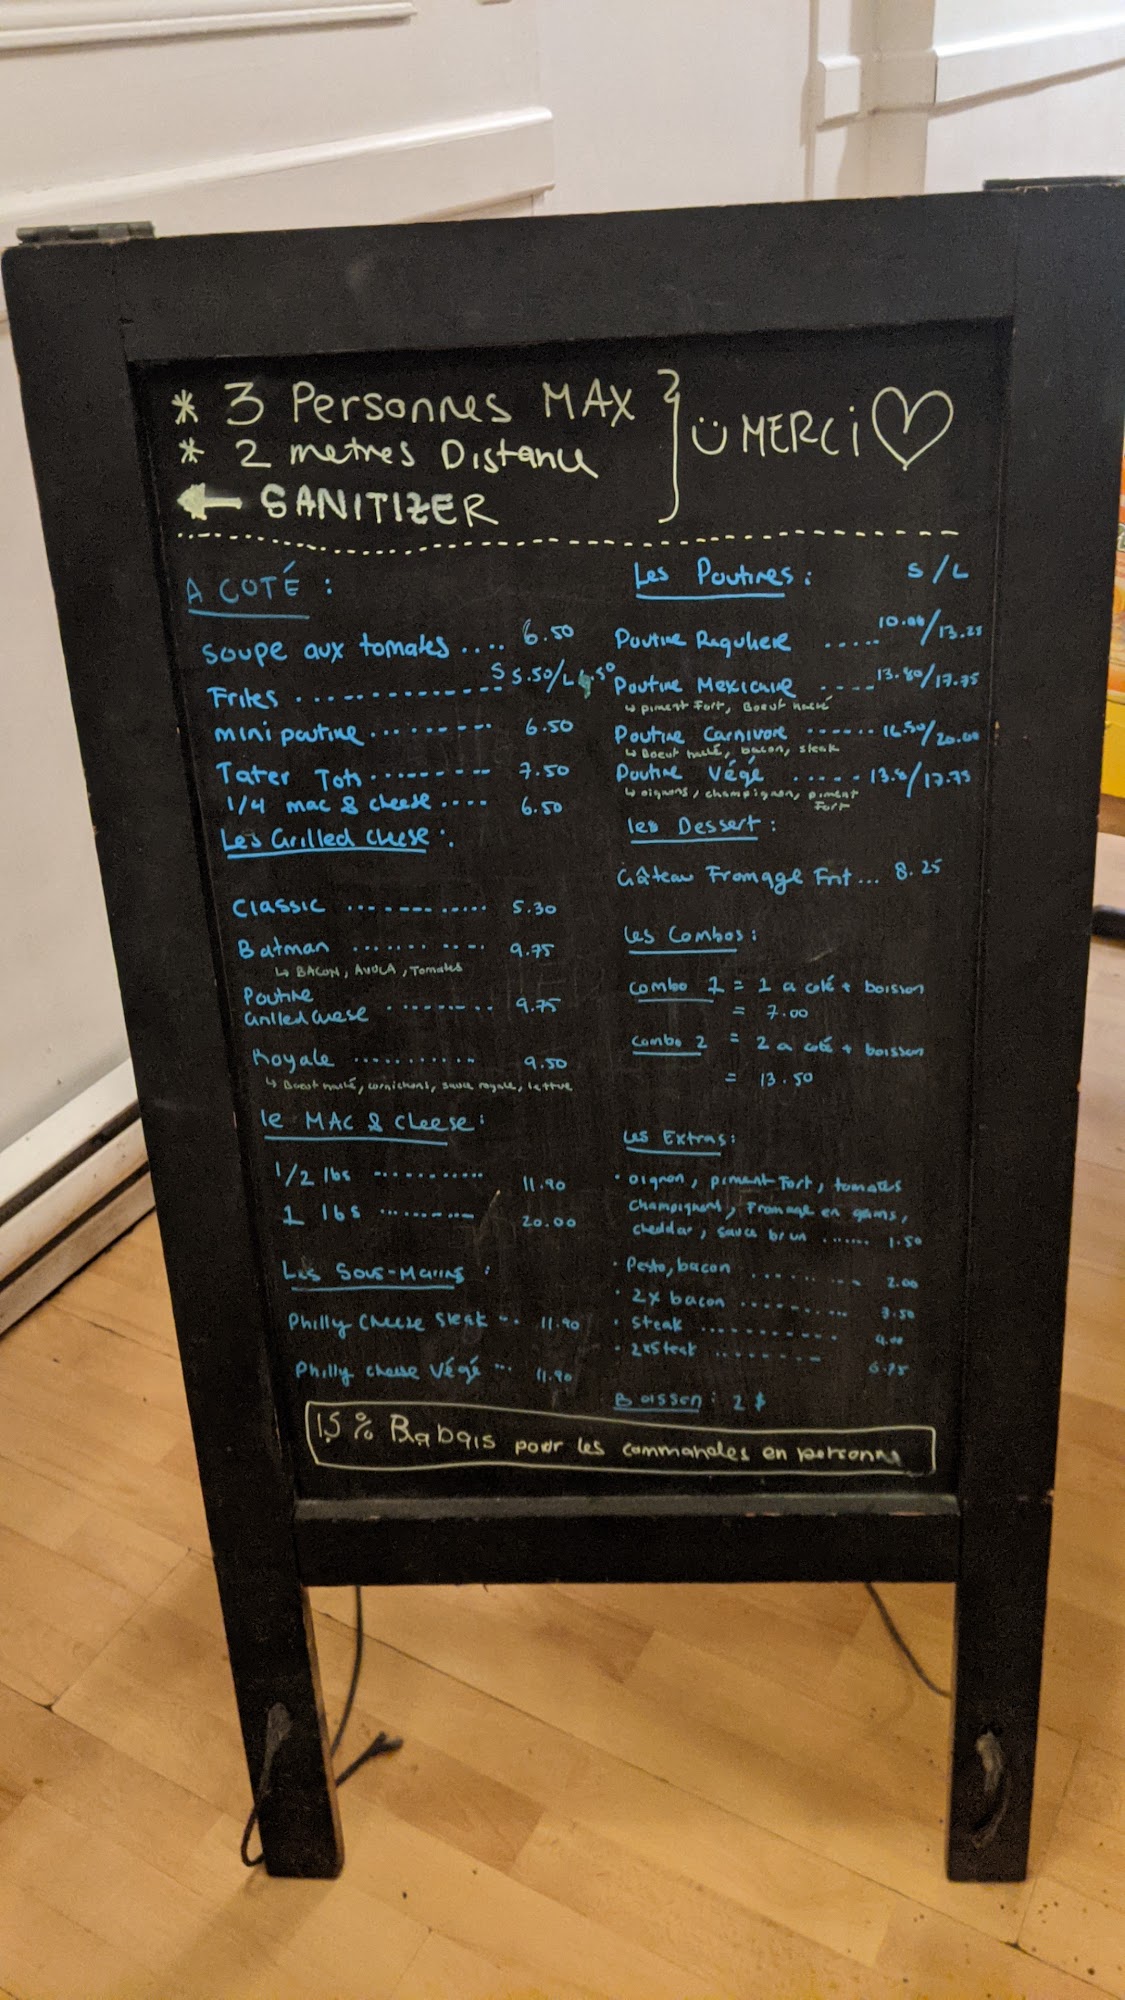 * 3 Personnes MAX
* 2 metres Distance
SANITIZER
MERCI
A COTÉ :
soupe aux tomates .... 6.50
Frites ............. S 5.50/L .50
mini poutine ......... 6.50
Tater Tots ......... 7.50
1/4 mac & cheese .... 6.50
Les Grilled cheese :
Classic ............ 5.30
Batman ............ 9.75
BACON, AVOCA, Tomates
Poutine
Grilled cheese ......... 9.75
Royale ........... 9.50
Boeuf haché, cornichons, sauce royale, lettue
le MAC & Cheese :
1/2 lbs ............ 11.90
1 lbs .......... 20.00
Les Sous-Marins :
Philly Cheese Steak ... 11.90
Philly cheese Végé ... 11.90
Les Poutines : S/L
Poutine Reguliere ..... 10.00/13.25
Poutine Mexicaine ..... 13.80/17.75
piment Fort, Boeuf haché
Poutine Carnivore ....... 16.50/20.00
Boeuf haché, bacon, steak
Poutine Végé ..... 13.8/17.75
oignons, champignon, piment
Fort
les Dessert :
Gâteau Fromage Frit ... 8.25
Les Combos :
Combo 1 = 1 a coté + boisson
= 7.00
Combo 2 = 2 a coté + boisson
= 13.50
Les Extras :
• oignon, piment Fort, tomates
champignons, Fromage en grains,
cheddar, sauce brun ....... 1.50
• Pesto, bacon ........... 2.00
• 2x bacon ........... 3.50
• steak .............. 4.00
• 2xSteak ........... 6.75
Boisson : 2 $
15 % Rabais pour les commandes en personne